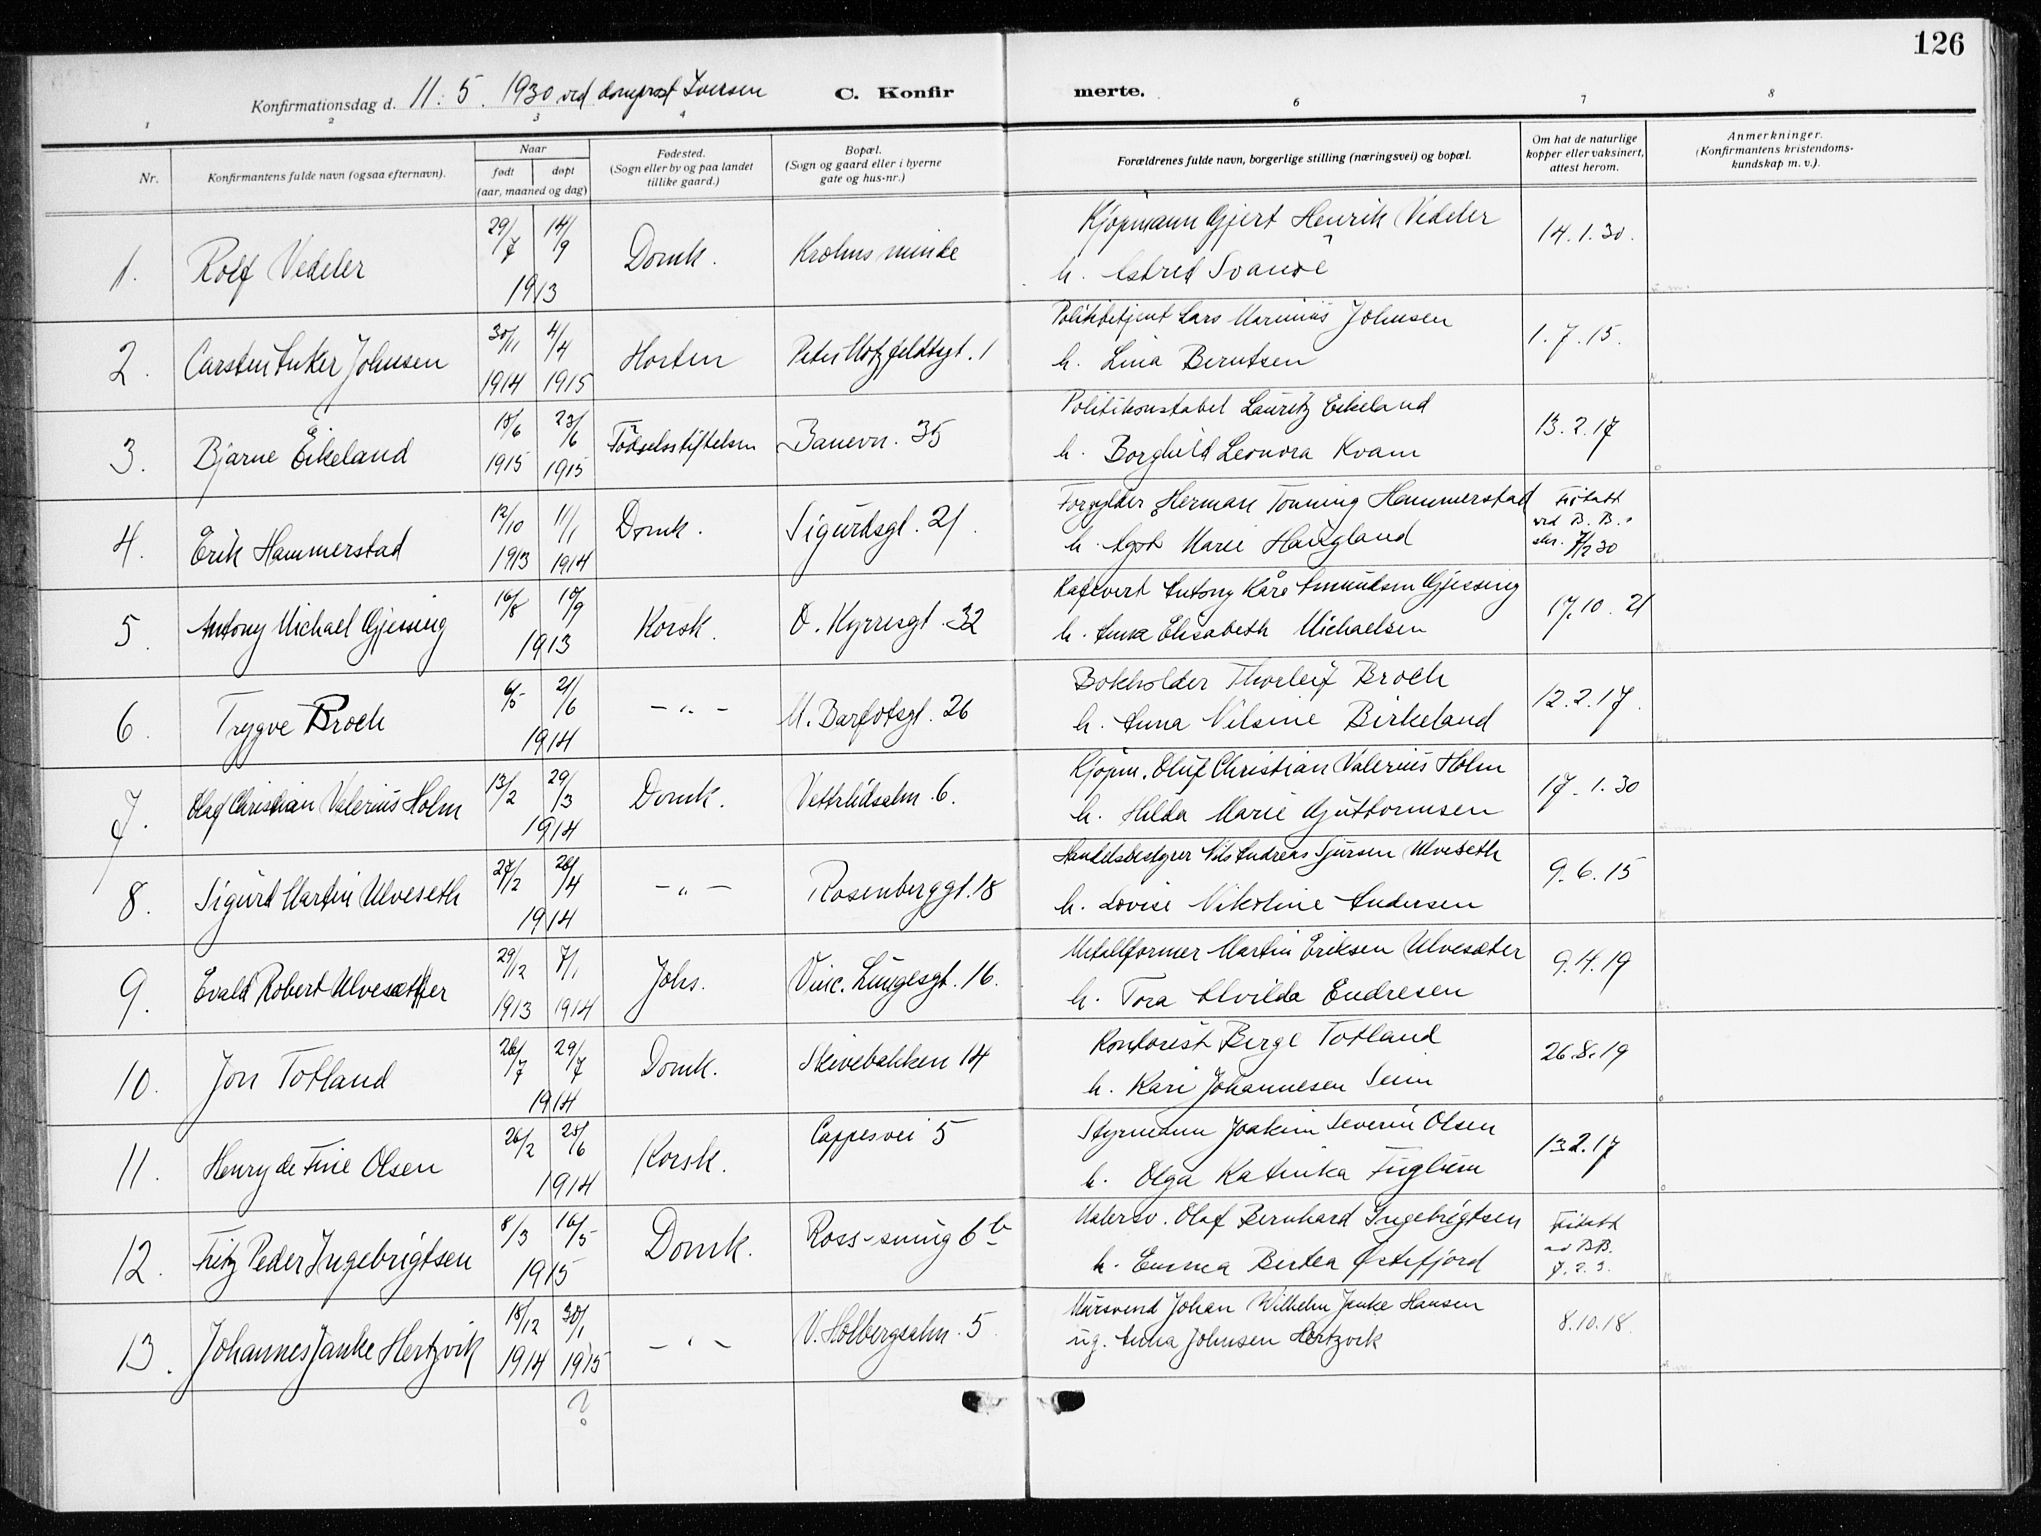 126
Konfirmationsdag d. 11. 5. 1930 ved domprost Iversen C. Konfir merte.
1 2 3 4 6 7 8
Nr. Konfirmantens fulde navn (ogsaa efternavn). Naar født døpt (aar, maaned og dag) Fødested. (Sogn eller by og paa landet tillike gaard.) Bopæl. (Sogn og gaard eller i byerne gate og hus-nr.) Forældrenes fulde navn, borgerlige stilling (næringsvei) og bopæl. Om hat de naturlige kopper eller vaksinert, attest herom. Anmerkninger. (Konfirmantens kristendoms-kundskap m. v.).
1. Rolf Vedeler 29/7 14/9 1913 Domk. Krohnsminde Kjøpmann Gjert Henrik Vedeler 14.1.30.
h. Astrid Svanøe
2. Carsten Anker Johnsen 30/11 1914 4/4 1915 Horten Peter Motzfeldtsgt. 1 Politibetjent Lars Marinius Johnsen 1.7.15.
h. Lina Berntsen
3. Bjarne Eikeland 15/6 1915 23/6 1915 Fødselsstiftelsen Banevn. 35 Politikonstabel Lauritz Eikeland 13.2.17
h. Borghild Leonora Kvam
4. Erik Hammerstad 12/10 1913 11/1 1914 Domk. Sigurdsgt. 21. Forgylder Herman Tonning Hammerstad Fritatt ved B.B.
h. Agot Marie Haugland skr. 7/2 30
5. Antony Michael Gjessing 16/8 10/9 1913 Korsk. O. Kyrresgt. 32 Kafevert Antony Kåre Amundsen Gjessing 17.10.21
h. Anna Elisabeth Michaelsen
6. Trygve Broch 6/5 21/6 1914 -"- M. Barfotsgt. 26 Bokholder Thorleif Broch 12.2.17.
h. Anna Nilsine Birkeland
7. Olaf Christian Valerius Holm 13/2 29/3 1914 Domk. Vettrlidsalm. 6. Kjøpm. Oluf Christian Valerius Holm 17.1.30
h. Hilda Marie Guttormsen
8. Sigurd Martin Ulveseth 27/2 26/4 1914 -"- Rosenberggt. 18 Handelsbestyrer Nils Andreas Sjursen Ulveseth 9.6.15
h. Lovise Nikoline Andersen
9. Evald Robert Ulvesæter 29/12 1913 7/1 1914 Johs. Vinc. Lungesgt. 16. Metallformer Martin Eriksen Ulvesæter 9.4.19
h. Tora Alvilda Endresen
10. Jon Totland 26/7 29/7 1914 Domk. Skivebakken 14 Kontorist Berge Totland 26.8.19
h. Kari Johannesen Seim
11. Henry de Fine Olsen 26/2 25/6 1914 Korsk. Cappesvei 5 Styrmann Joakim Severin Olsen 13.2.17
h. Olga Katinka Fuglum
12. Fritz Peder Ingebrigtsen 8/3 16/5 1915 Domk. Ross-smug 6b Malersv. Olaf Bernhard Ingebrigtsen Fritatt
h. Emma Bertea Østefjord
13. Johannes Janke Hertzvik 18/12 1914 30/1 1915 -"- V. Holbergsalm. 5 Mursvend Johan Wilhelm Janke Hansen 8.10.18.
ug. Anna Johnsen Hertzvik
?